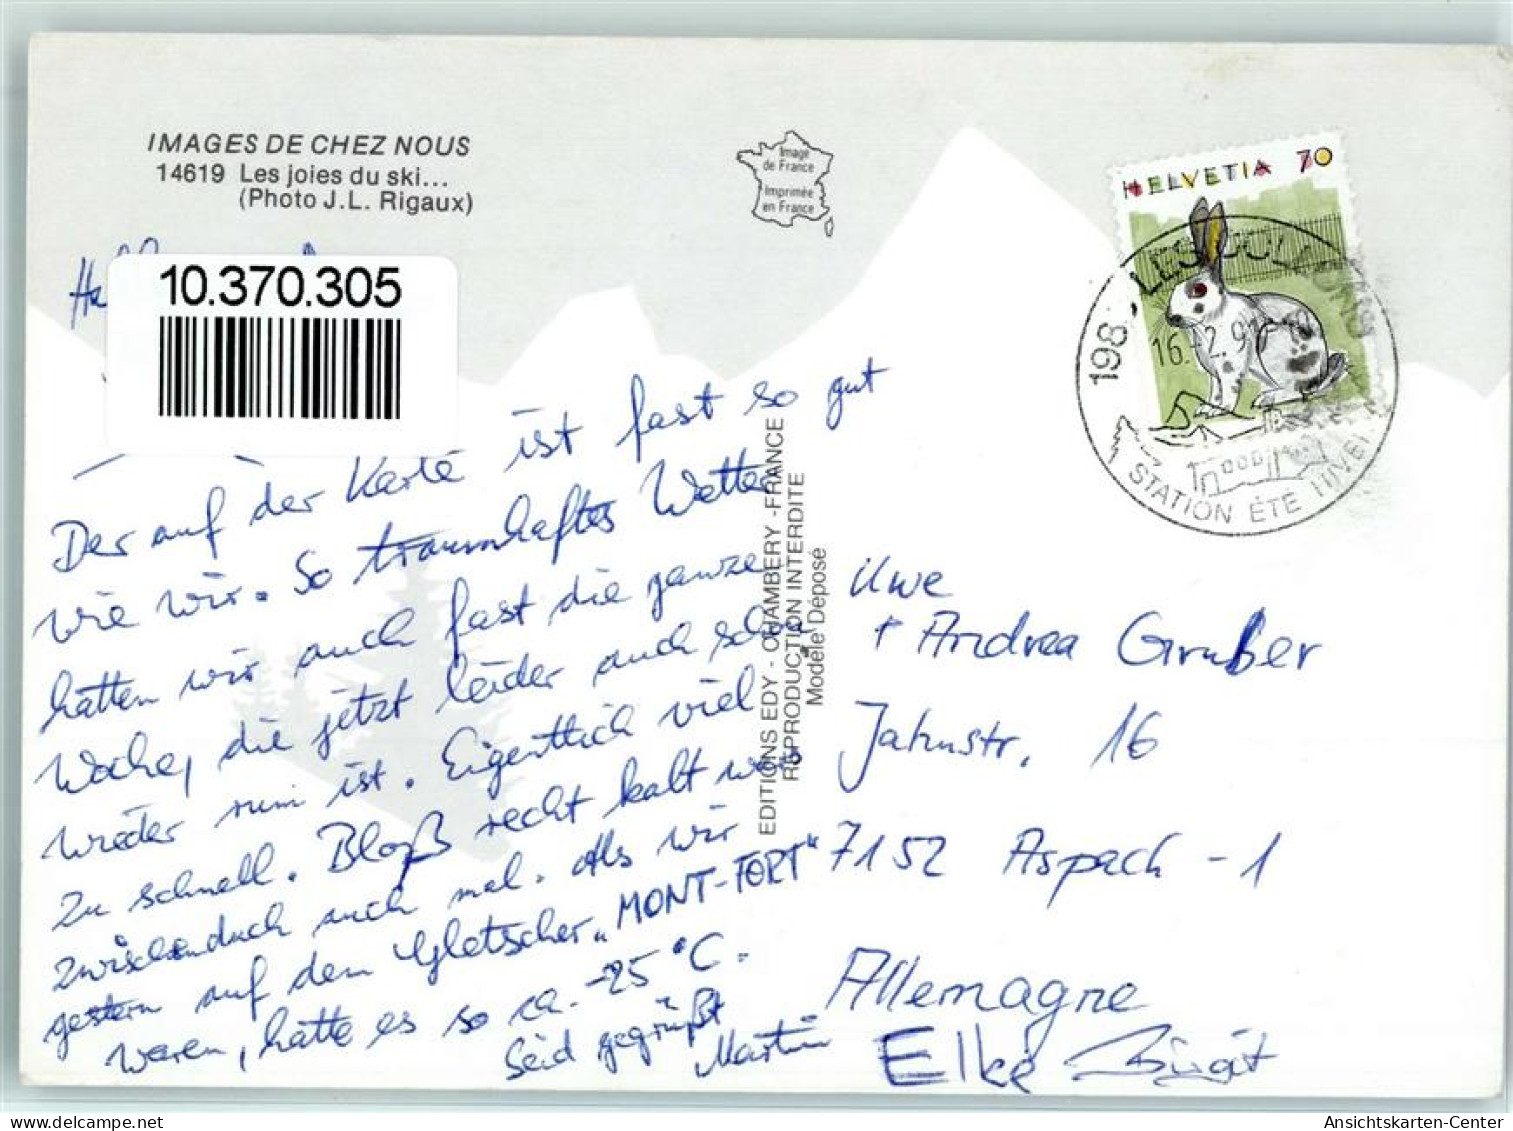 IMAGES DE CHEZ NOUS
14619 Les joies du ski...
(Photo J.L. Rigaux)
Image
de France
Imprimée
en France
HELVETIA 70
16.-2.91
STATION ÉTÉ HIVER
10.370.305
Der auf der Karte ist fast so gut
wie wir. So traumhaftes Wetter
hatten wir auch fast die ganze
Woche, die jetzt leider auch schon
wieder rum ist. Eigentlich viel
zu schnell. Bloß recht kalt war
zwischendurch auch mal. Als wir
gestern auf dem Gletscher „MONT-FORT“
waren, hatte es so ca. -25 °C.
Seid gegrüßt
Martin Elke Birgit
EDITIONS EDY - CHAMBERY - FRANCE
REPRODUCTION INTERDITE
Modèle Déposé
Uwe
+ Andrea Gruber
Jahnstr. 16
7152 Aspach - 1
Allemagne
oldthing.de
Ansichtskarten-Center